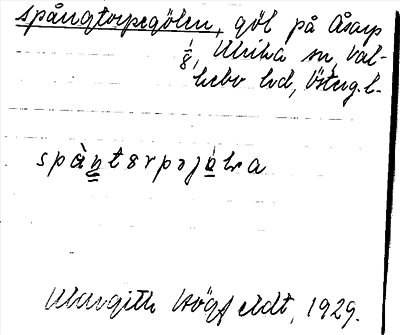 Spångtorpegölen, göl på Åsarp
1/8, Ulrika sn, Val-
kebo hd, Österg.l.
Margith Högfeldt, 1929.